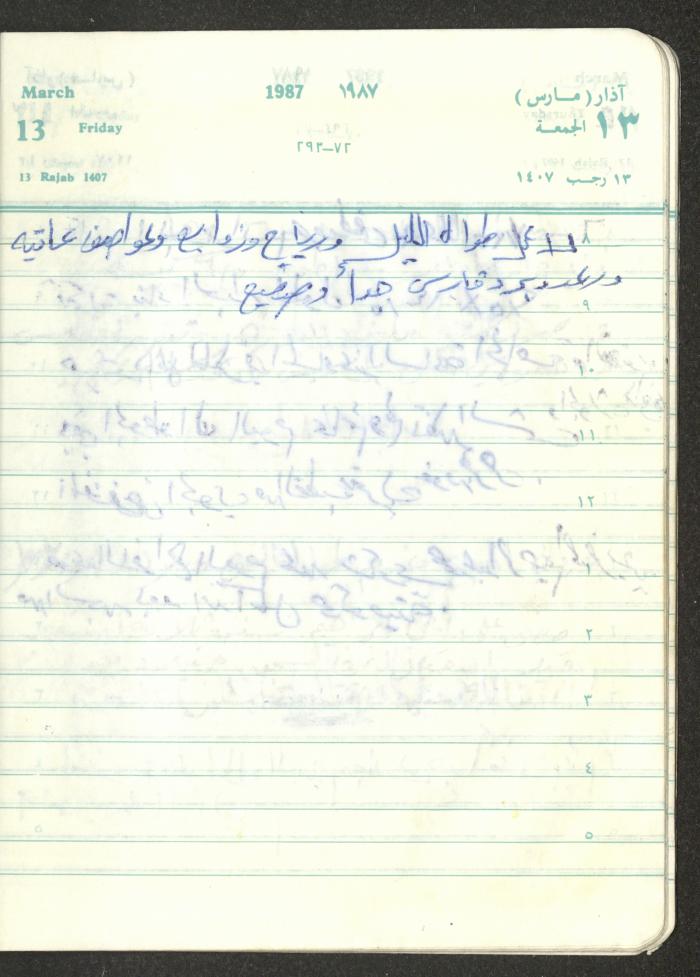 March 1987 ١٩٨٧ آذار (مارس)
13 Friday ١٣ الجمعة
٧٢-٢٩٣
13 Rajab 1407 ١٣ رجب ١٤٠٧
٨ على طوال الليل ورياح وزوابع وعواصف عاتيه
ورعد وبرد قارس جداً وصقيع
٩
١٠
١١
١٢
١
٢
٣
٤
٥